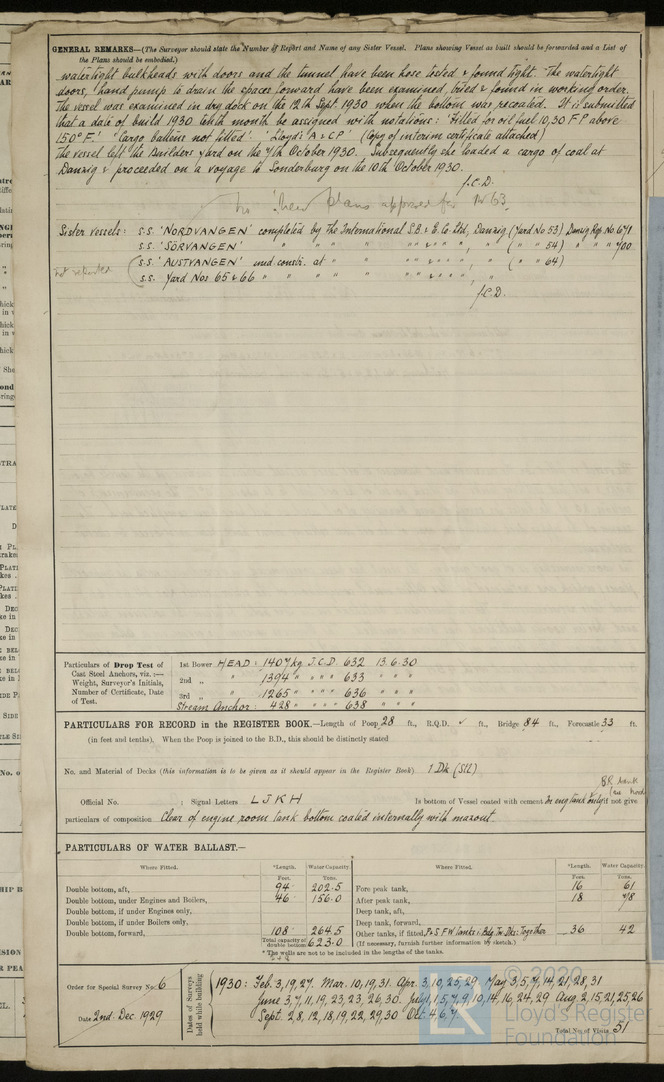 GENERAL REMARKS—(The Surveyor should state the Number of Report and Name of any Sister Vessel. Plans showing Vessel as built should be forwarded and a List of
the Plans should be embodied.)
watertight bulkheads with doors and the tunnel have been hose tested & found tight. The watertight
doors, hand pump to drain the spaces forward have been examined, tried & found in working order.
The vessel was examined in dry dock on the 12th Sept 1930 when the bottom was recoated. It is submitted
that a date of build 1930 tenth month be assigned with notations: 'Fitted for oil fuel 10,30 F P above
150° F.' 'Cargo battens not fitted'. 'Lloyd's A & C P' (Copy of interim certificate attached)
The vessel left the Builders yard on the 7th October 1930. Subsequently she loaded a cargo of coal at
Danzig & proceeded on a voyage to Sonderburg on the 10th October 1930.
J.C.D.
plans approved for No 53
Sister vessels: S.S. 'NORDVANGEN' completed by The International S.B. & E. Co Ltd, Danzig (Yard No 53) Danzig Rep. No. 671
S.S. 'SÖRVANGEN' " " " " " " " " " ( " " 54) " " " 700
not reported
S.S. 'AUSTVANGEN' und. constr. at " " " " " " " " ( " " 64)
S.S. Yard Nos 65 & 66 " " " " " " " " "
J.C.D.
Particulars of Drop Test of
Cast Steel Anchors, viz.:—
Weight, Surveyor's Initials,
Number of Certificate, Date
of Test.
1st Bower HEAD: 1407 kg J.C.D. 632 13.6.30
2nd „ " 1394 " " " " 633 " " "
3rd „ " 1265 " " " " 636 " " "
Stream Anchor: 428 " " " " 638 " " "
PARTICULARS FOR RECORD in the REGISTER BOOK.—Length of Poop 28 ft., R.Q.D. ✓ ft., Bridge 84 ft., Forecastle 33 ft.
(in feet and tenths). When the Poop is joined to the B.D., this should be distinctly stated
No. and Material of Decks (this information is to be given as it should appear in the Register Book) 1 Dk (Stl)
Official No. ; Signal Letters L J K H Is bottom of Vessel coated with cement In eng tank only if not give
particulars of composition Clear of engine room tank bottom coated internally with maxout.
PARTICULARS OF WATER BALLAST.—
Where Fitted. *Length. Water Capacity. Where Fitted. *Length. Water Capacity.
Feet. Tons. Feet. Tons.
Double bottom, aft, 94 202.5 Fore peak tank, 16 61
Double bottom, under Engines and Boilers, 46 156.0 After peak tank, 18 78
Double bottom, if under Engines only, Deep tank, aft,
Double bottom, if under Boilers only, Deep tank, forward,
Double bottom, forward, 108 264.5 Other tanks, if fitted, P & S F W tanks i. Bdg. Tw. Dks: Together 36 42
Total capacity of double bottom 623.0 (If necessary, furnish further information by sketch.)
* The wells are not to be included in the lengths of the tanks.
Order for Special Survey No. 6
Date 2nd Dec. 1929
Dates of Surveys held while building
1930: Feb. 3,19,27. Mar. 10,19,31. Apr. 3,10,25,29. May 3,5,7,14,21,28,31
June 3,7,11,19,23,23,26,30. July 1,1,5,7,9,10,14,16,24,29 Aug. 2,15,21,25,26
Sept. 2,8,12,18,19,22,29,30 Oct. 4,6,7
Total No. of Visits 51
© 2020
LR
Lloyd's Register
Foundation